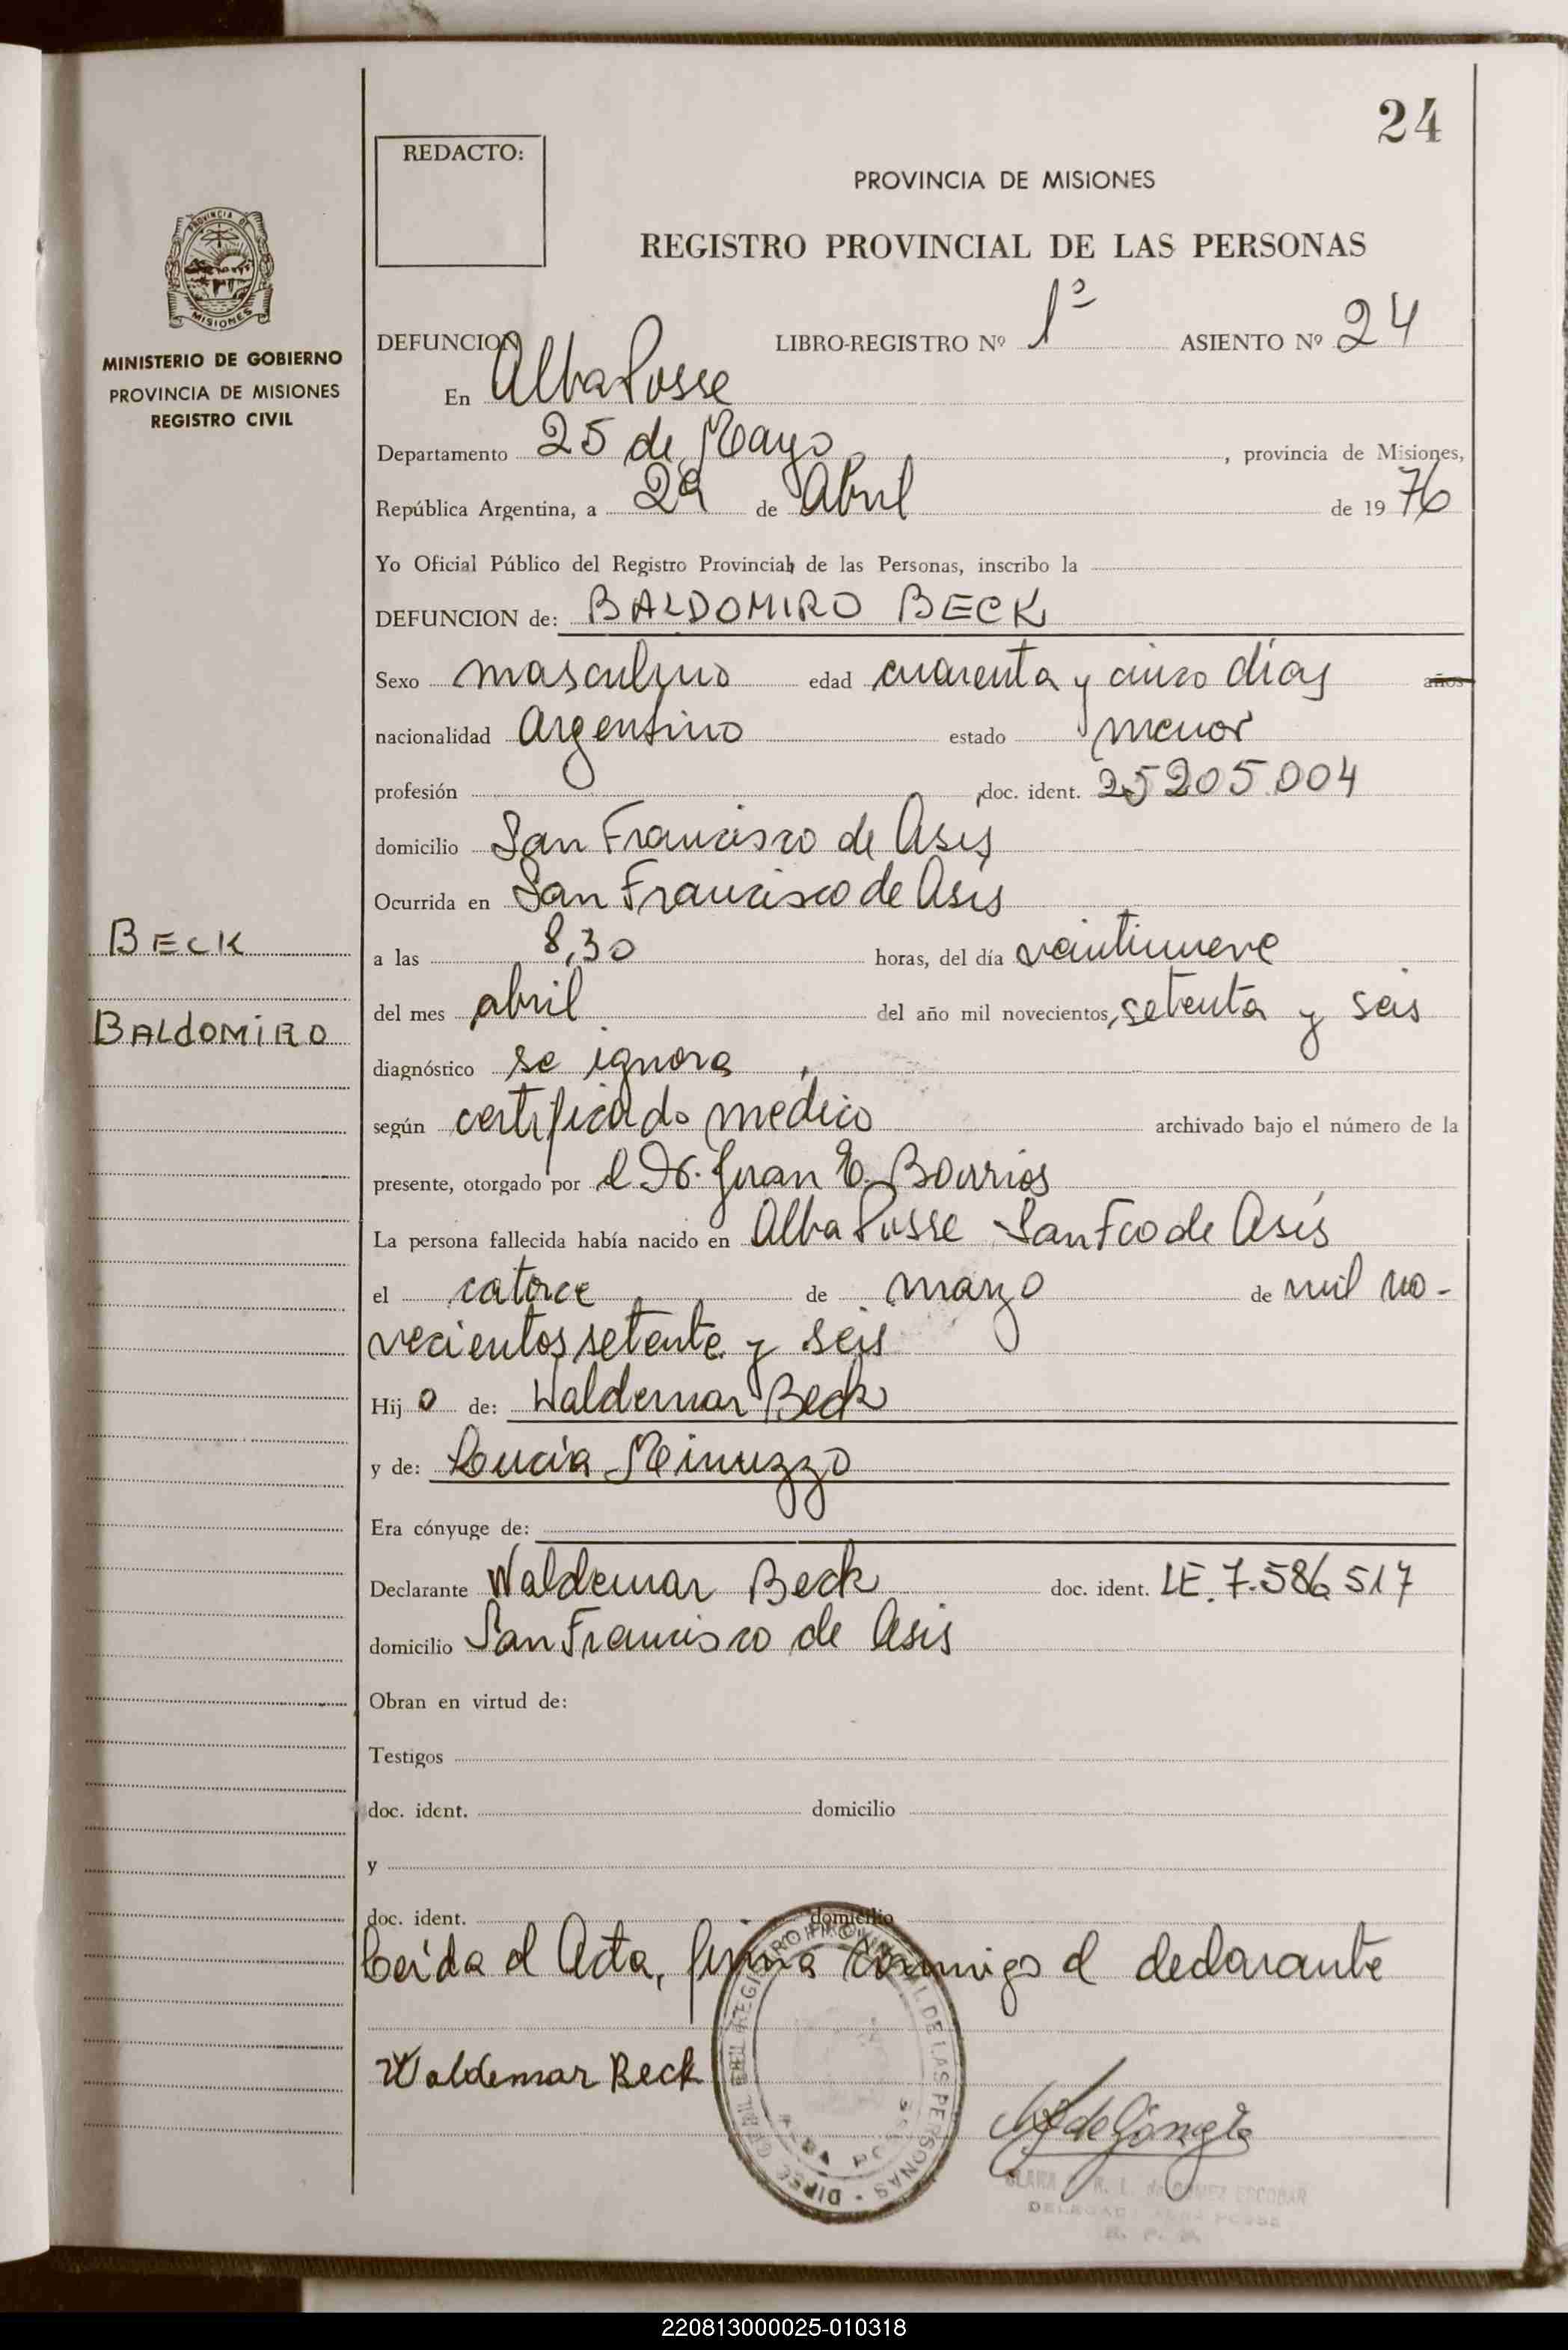 24
REDACTO:
PROVINCIA DE MISIONES
REGISTRO PROVINCIAL DE LAS PERSONAS
PROVINCIA DE
MISIONES
MINISTERIO DE GOBIERNO
PROVINCIA DE MISIONES
REGISTRO CIVIL
DEFUNCION LIBRO-REGISTRO Nº 1º ASIENTO Nº 24
En Alba Posse
Departamento 25 de Mayo, provincia de Misiones,
República Argentina, a 29 de Abril de 1976
Yo Oficial Público del Registro Provincial de las Personas, inscribo la
DEFUNCION de: BALDOMIRO BECK
Sexo masculino edad cuarenta y cinco días años
nacionalidad Argentino estado menor
profesión doc. ident. 25205.004
domicilio San Francisco de Asis
Ocurrida en San Francisco de Asís
BECK
a las 8,30 horas, del día veintinueve
BALDOMIRO
del mes abril del año mil novecientos, setenta y seis
diagnóstico se ignora
según certificado medico archivado bajo el número de la
presente, otorgado por el Dr. Juan E. Barrios
La persona fallecida había nacido en Alba Posse San Fco de Asís
el catorce de marzo de mil no-
vecientos setenta y seis
Hijo de: Waldemar Beck
y de: Lucía Minuzzo
Era cónyuge de:
Declarante Waldemar Beck doc. ident. LE. 7.586 517
domicilio San Francisco de Asis
Obran en virtud de:
Testigos
doc. ident. domicilio
y
doc. ident. domicilio
Leída el Acta, firma conmigo el declarante
Waldemar Beck
REGISTRO PROVINCIAL DE LAS PERSONAS
CLARA R. L. de GOMEZ ESCOBAR
220813000025-010318